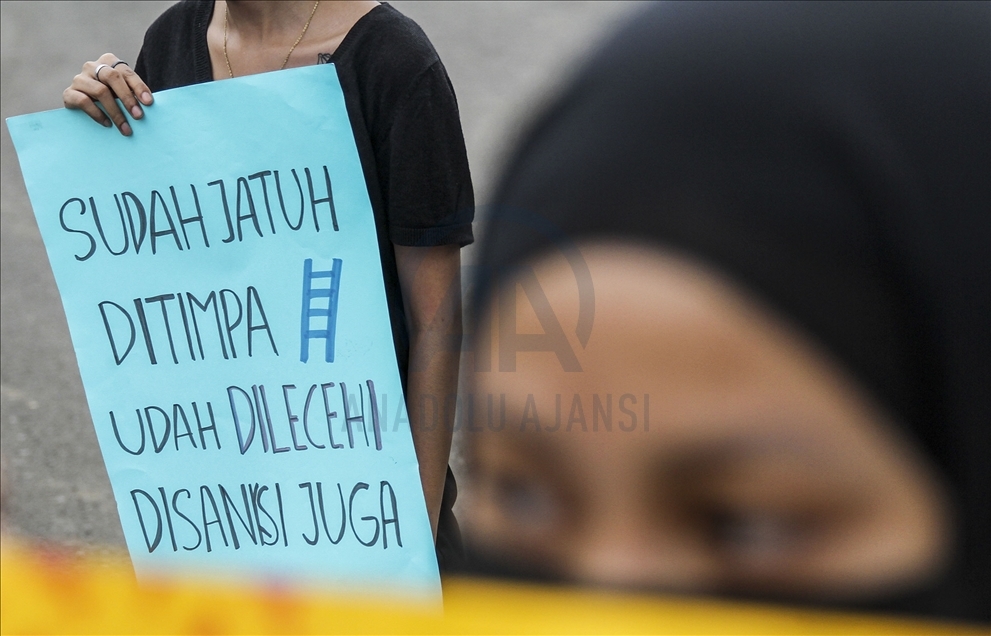 SUDAH JATUH
DITIMPA
UDAH DILECEHI
DISANKSI JUGA
AA
ANADOLU AJANSI